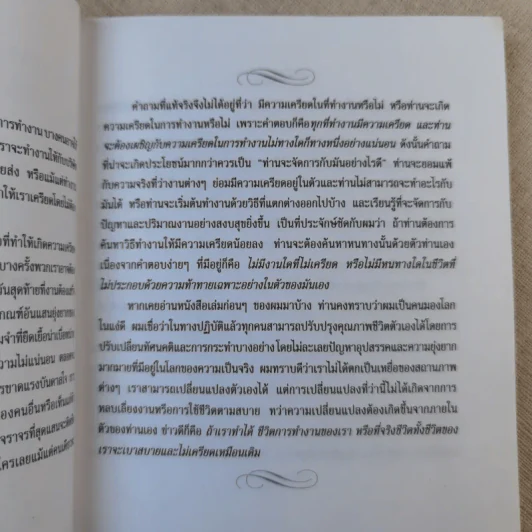 การทำงาน บางคนอาจ
เราจะทำงานให้กับบริษัท
ยส่ง หรือแม้แต่ทำงาน
ให้เราเครียดโดยไม่
ที่ทำให้เกิดความเครียด
บางครั้งพวกเราอาจ
วันสุดท้ายที่งานต้อง
กณฑ์อันแสนยุ่งยาก
จำที่ยืดเยื้อน่าเบื่อ
ความไม่แน่นอน ตลอด
ารขาดแรงบันดาลใจ
องคนอื่นหรือเห็น
จราจรที่สุดแสนจะติด
ใครเลยแม้แต่คนเดียว
คำถามที่แท้จริงจึงไม่ได้อยู่ที่ว่า มีความเครียดในที่ทำงานหรือไม่ หรือท่านจะเกิด
ความเครียดในการทำงานหรือไม่ เพราะคำตอบก็คือทุกที่ทำงานมีความเครียด และท่าน
จะต้องเผชิญกับความเครียดในการทำงานไม่ทางใดก็ทางหนึ่งอย่างแน่นอน ดังนั้นคำถาม
ที่น่าจะเกิดประโยชน์มากกว่าควรเป็น "ท่านจะจัดการกับมันอย่างไรดี" ท่านจะยอมแพ้
กับความจริงที่ว่างานต่างๆ ย่อมมีความเครียดอยู่ในตัวและท่านไม่สามารถจะทำอะไรกับ
มันได้ หรือท่านจะเริ่มต้นทำงานด้วยวิธีที่แตกต่างออกไปบ้าง และเรียนรู้ที่จะจัดการกับ
ปัญหาและปริมาณงานอย่างสงบสุขยิ่งขึ้น เป็นที่ประจักษ์ชัดกับผมว่า ถ้าท่านต้องการ
ค้นหาวิธีทำงานให้มีความเครียดน้อยลง ท่านจะต้องค้นหาหนทางนั้นด้วยตัวท่านเอง
เนื่องจากคำตอบง่ายๆ ที่มีอยู่ก็คือ ไม่มีงานใดที่ไม่เครียด หรือไม่มีหนทางใดในชีวิตที่
ไม่ประกอบด้วยความท้าทายเฉพาะอย่างในตัวของมันเอง
หากเคยอ่านหนังสือเล่มก่อนๆ ของผมมาบ้าง ท่านคงทราบว่าผมเป็นคนมองโลก
ในแง่ดี ผมเชื่อว่าในทางปฏิบัติแล้วทุกคนสามารถปรับปรุงคุณภาพชีวิตตัวเองได้โดยการ
ปรับเปลี่ยนทัศนคติและการกระทำบางอย่าง โดยไม่ละเลยปัญหาอุปสรรคและความยุ่งยาก
มากมายที่มีอยู่ในโลกของความเป็นจริง ผมทราบดีว่าเราไม่ได้ตกเป็นเหยื่อของสถานภาพ
ต่างๆ เราสามารถเปลี่ยนแปลงตัวเองได้ แต่การเปลี่ยนแปลงที่ว่านี้ไม่ได้เกิดจากการ
หลบเลี่ยงงานหรือการใช้ชีวิตตามสบาย ทว่าความเปลี่ยนแปลงต้องเกิดขึ้นจากภายใน
ตัวของท่านเอง ข่าวดีก็คือ ถ้าเราทำได้ ชีวิตการทำงานของเรา หรือที่จริงชีวิตทั้งชีวิตของ
เราจะเบาสบายและไม่เครียดเหมือนเดิม